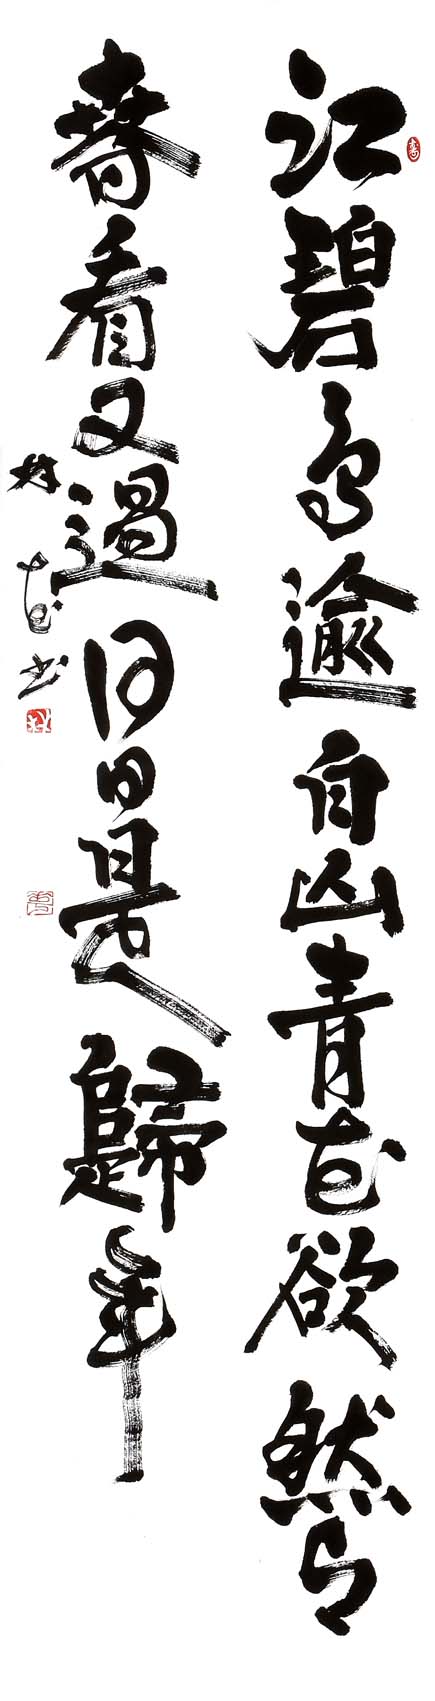 江碧鳥逾白山青花欲然今
春看又過何日是歸年
林书